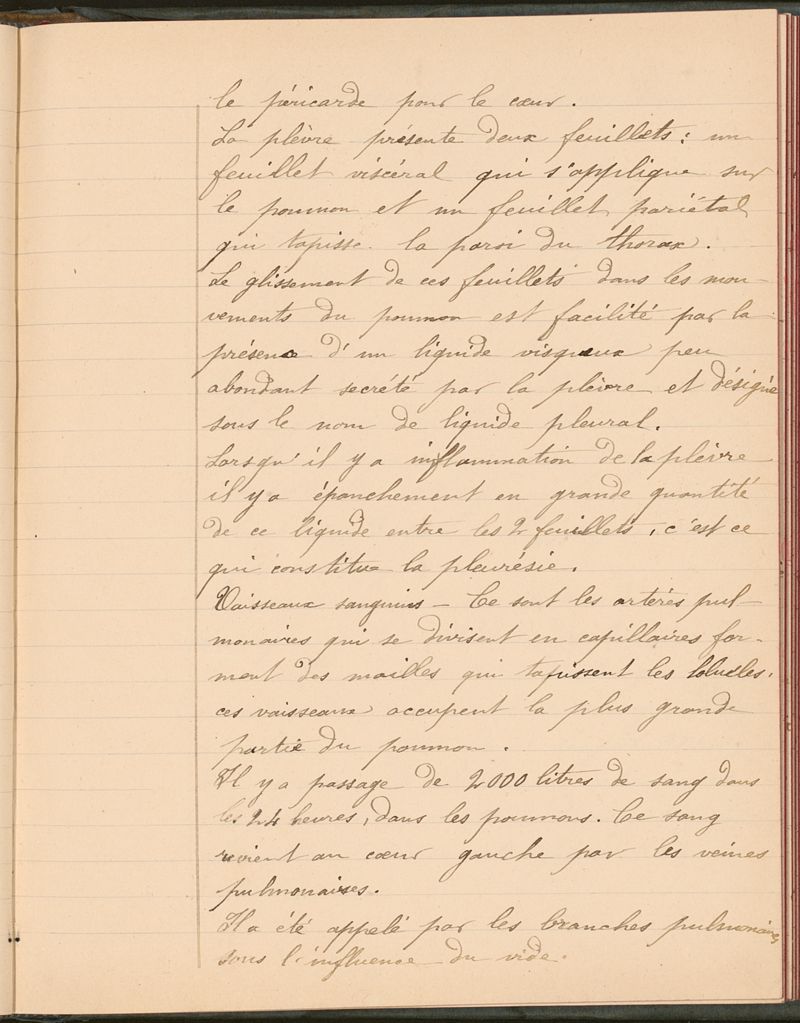 le péricarde pour le cœur.
La plèvre présente deux feuillets : un
feuillet viscéral qui s'applique sur
le poumon et un feuillet pariétal
qui tapisse la paroi du thorax.
Le glissement de ces feuillets dans les mou-
vements du poumon est facilité par la
présence d'un liquide visqueux peu
abondant secrété par la plèvre et désigné
sous le nom de liquide pleural.
Lorsqu'il y a inflammation de la plèvre
il y a épanchement en grande quantité
de ce liquide entre les 2 feuillets, c'est ce
qui constitue la pleurésie.
Vaisseaux sanguins - Ce sont les artères pul-
monaires qui se divisent en capillaires for-
ment des mailles qui tapissent les lobules.
ces vaisseaux occupent la plus grande
partie du poumon.
Il y a passage de 2000 litres de sang dans
les 24 heures, dans les poumons. Ce sang
revient au cœur gauche par les veines
pulmonaires.
Il a été appelé par les branches pulmonaires
sous l'influence du vide.